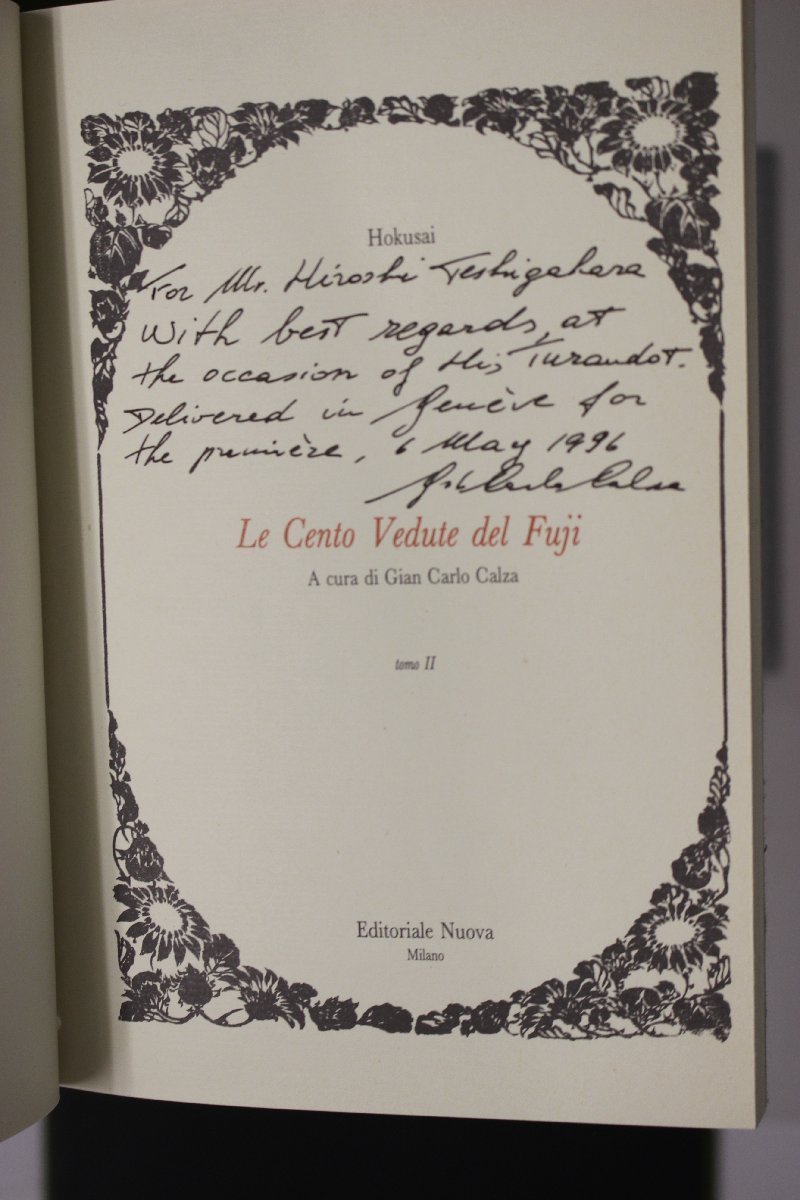 Hokusai
For Mr. Hiroshi Teshigahara
With best regards, at
the occasion of His Turandot.
Delivered in Genève for
the première, 6 May 1996
Gian Carlo Calza
Le Cento Vedute del Fuji
A cura di Gian Carlo Calza
tomo II
Editoriale Nuova
Milano